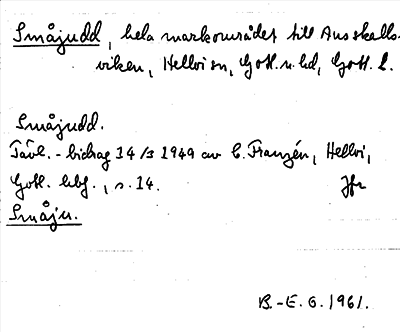 Småjudd, hela markområdet till Ausskalls-
viken, Hellvi sn, Gotl. n. hd, Gotl. l.
Småjudd.
Tävl.-bidrag 14/3 1949 av C. Franzén, Hellvi,
Gotl. hbf., s. 14.
Jfr
Småju.
B.-E. G. 1961.